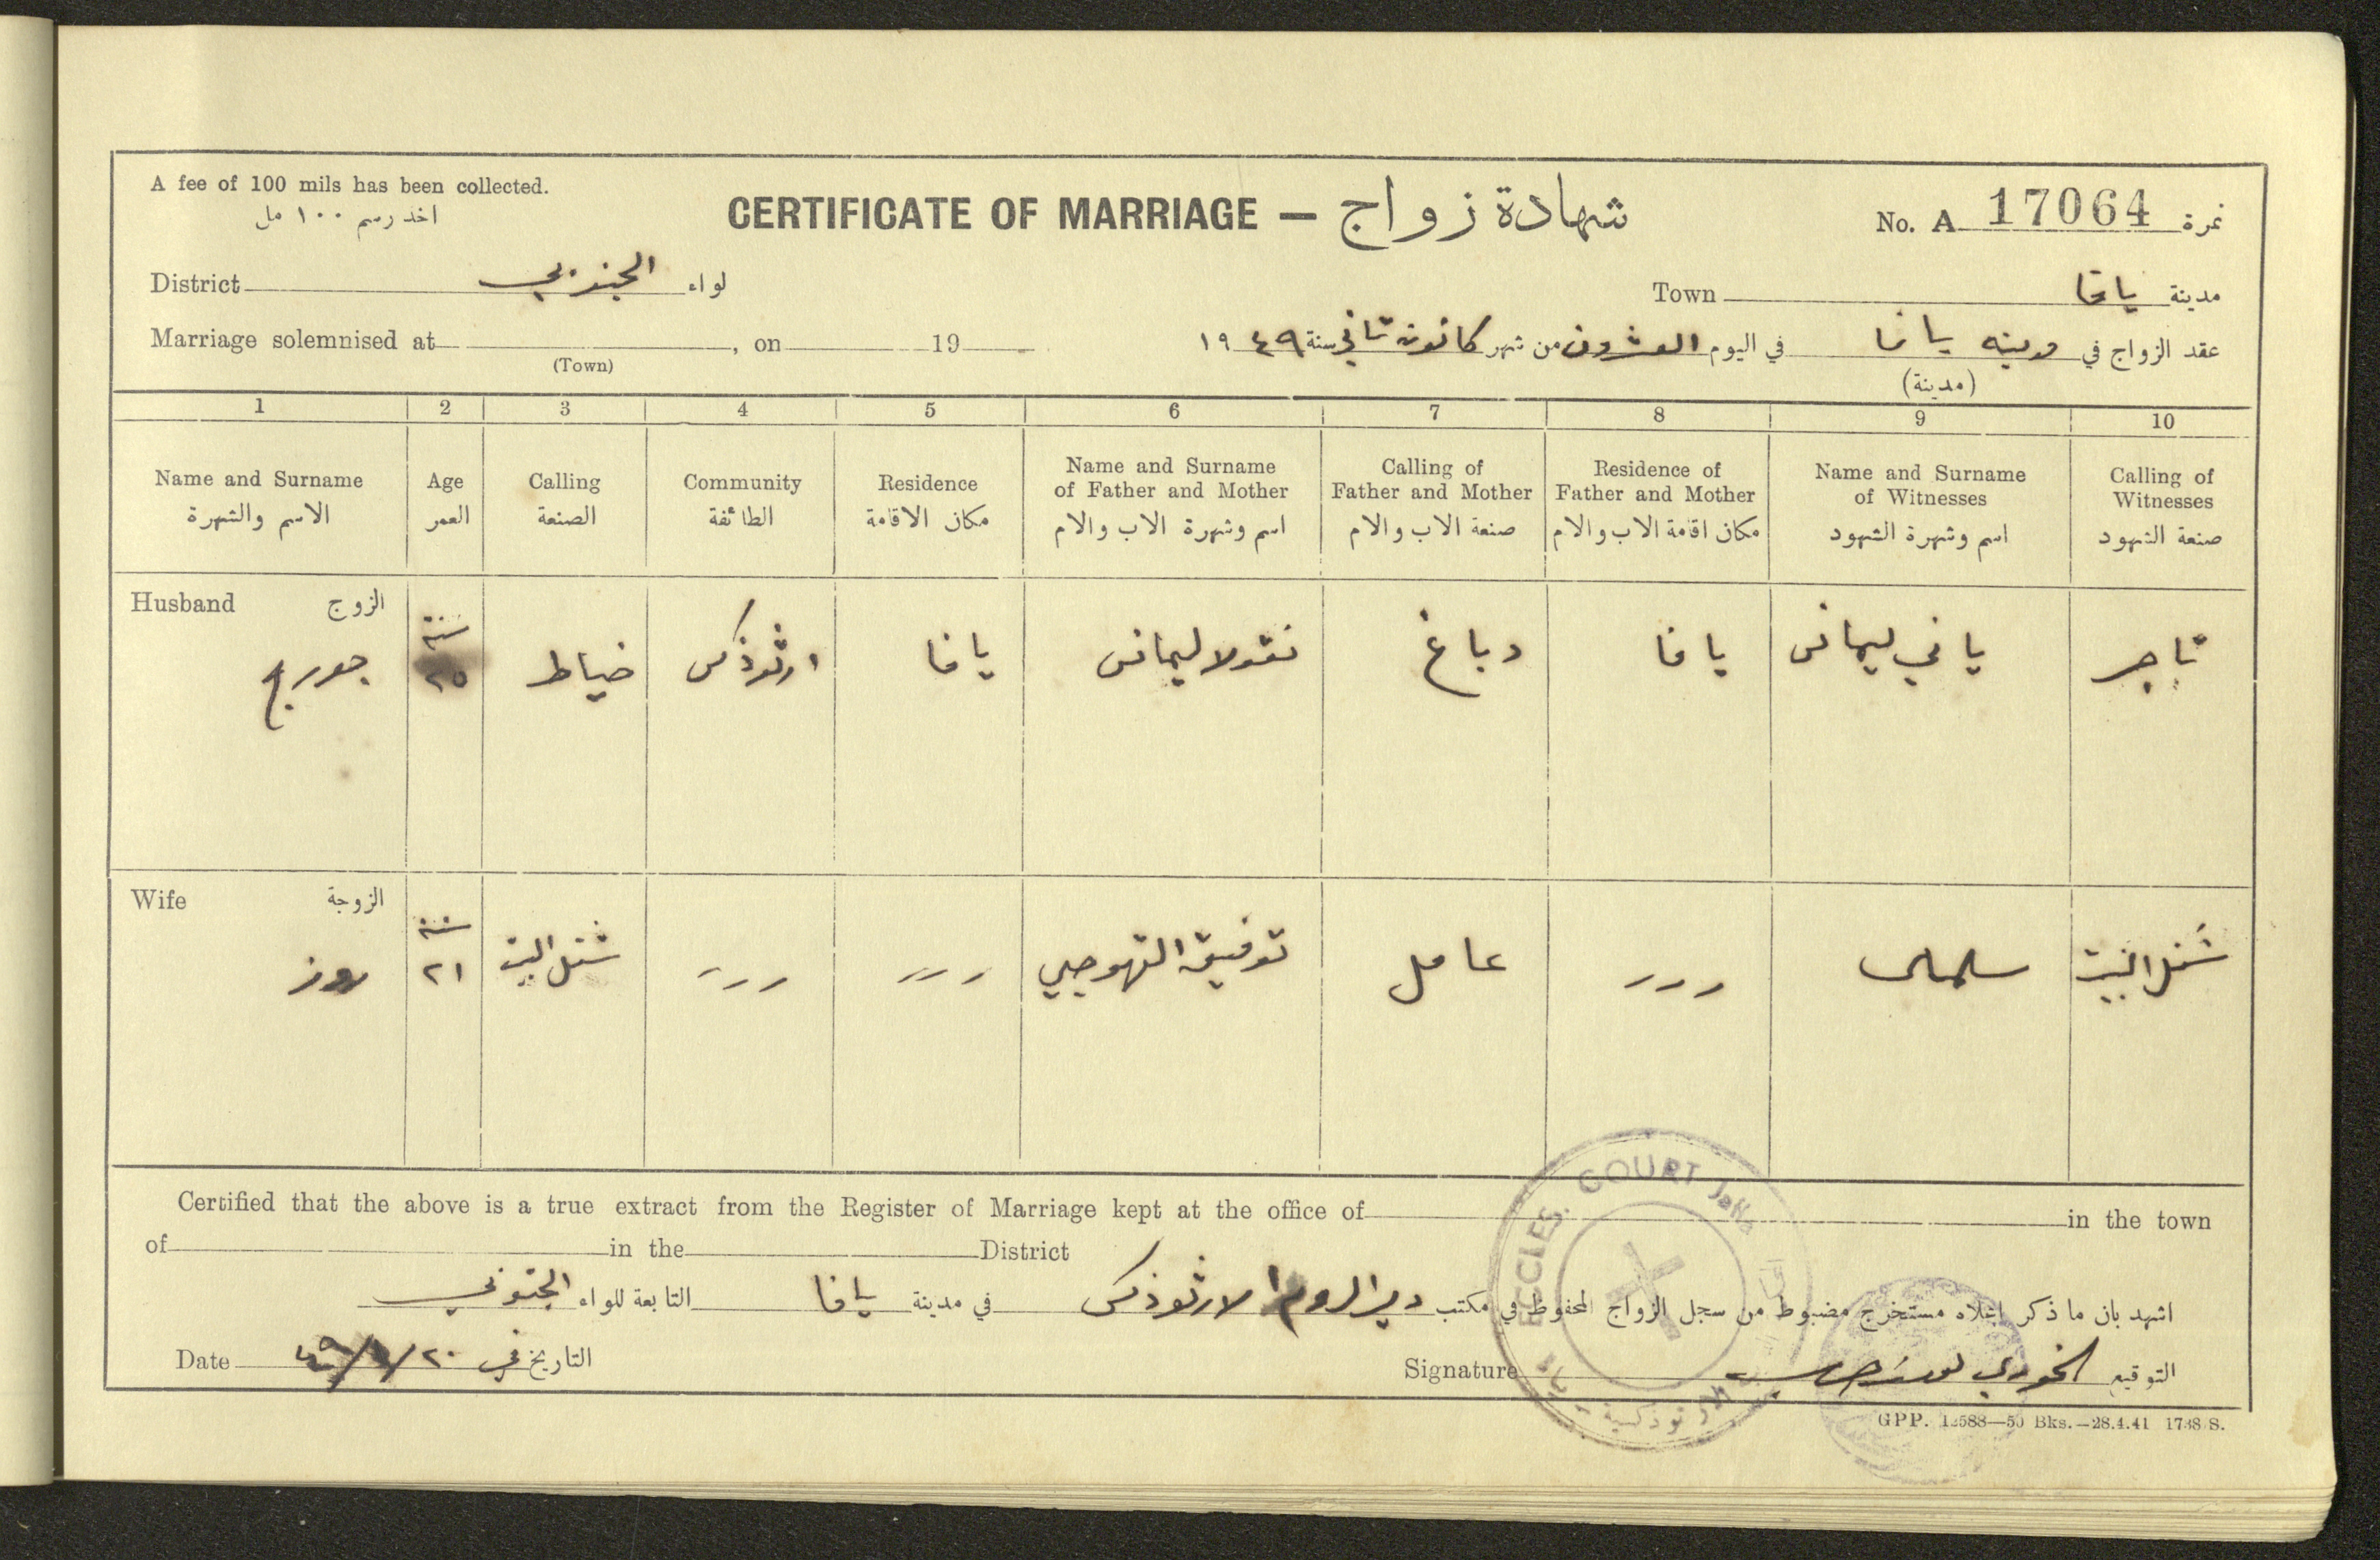 A fee of 100 mils has been collected.
اخذ رسم ١٠٠ مل
CERTIFICATE OF MARRIAGE — شهادة زواج
No. A 17064 نمرة
District الجنوبي لواء
Town يافا مدينة
Marriage solemnised at , on 19
(Town)
عقد الزواج في مدينه يافا في اليوم العشرون من شهر كانون تاني سنة ١٩٤٩
(مدينة)
1 2 3 4 5 6 7 8 9 10
Name and Surname
الاسم والشهرة
Age
العمر
Calling
الصنعة
Community
الطائفة
Residence
مكان الاقامة
Name and Surname
of Father and Mother
اسم وشهرة الاب والام
Calling of
Father and Mother
صنعة الاب والام
Residence of
Father and Mother
مكان اقامة الاب والام
Name and Surname
of Witnesses
اسم وشهرة الشهود
Calling of
Witnesses
صنعة الشهود
Husband الزوج
جورج
سنة
٢٥
خياط
ارثوذكس
يافا
نقولا ليماني
دباغ
يافا
ياني ليماني
تاجر
Wife الزوجة
روز
سنة
٢١
شغل البيت
توفيق القهوجي
عامل
شغل البيت
Certified that the above is a true extract from the Register of Marriage kept at the office of in the town
of in the District
اشهد بان ما ذكر اعلاه مستخرج مضبوط من سجل الزواج المحفوظ في مكتب دير الروم الارثوذكس في مدينة يافا التابعة للواء الجنوبي
Date ٢٠/١/٤٩ التاريخ في
Signature الخوري التوقيع
ECCLES. COURT Jaffa
GPP. 12588—50 Bks.—28.4.41 1738/S.